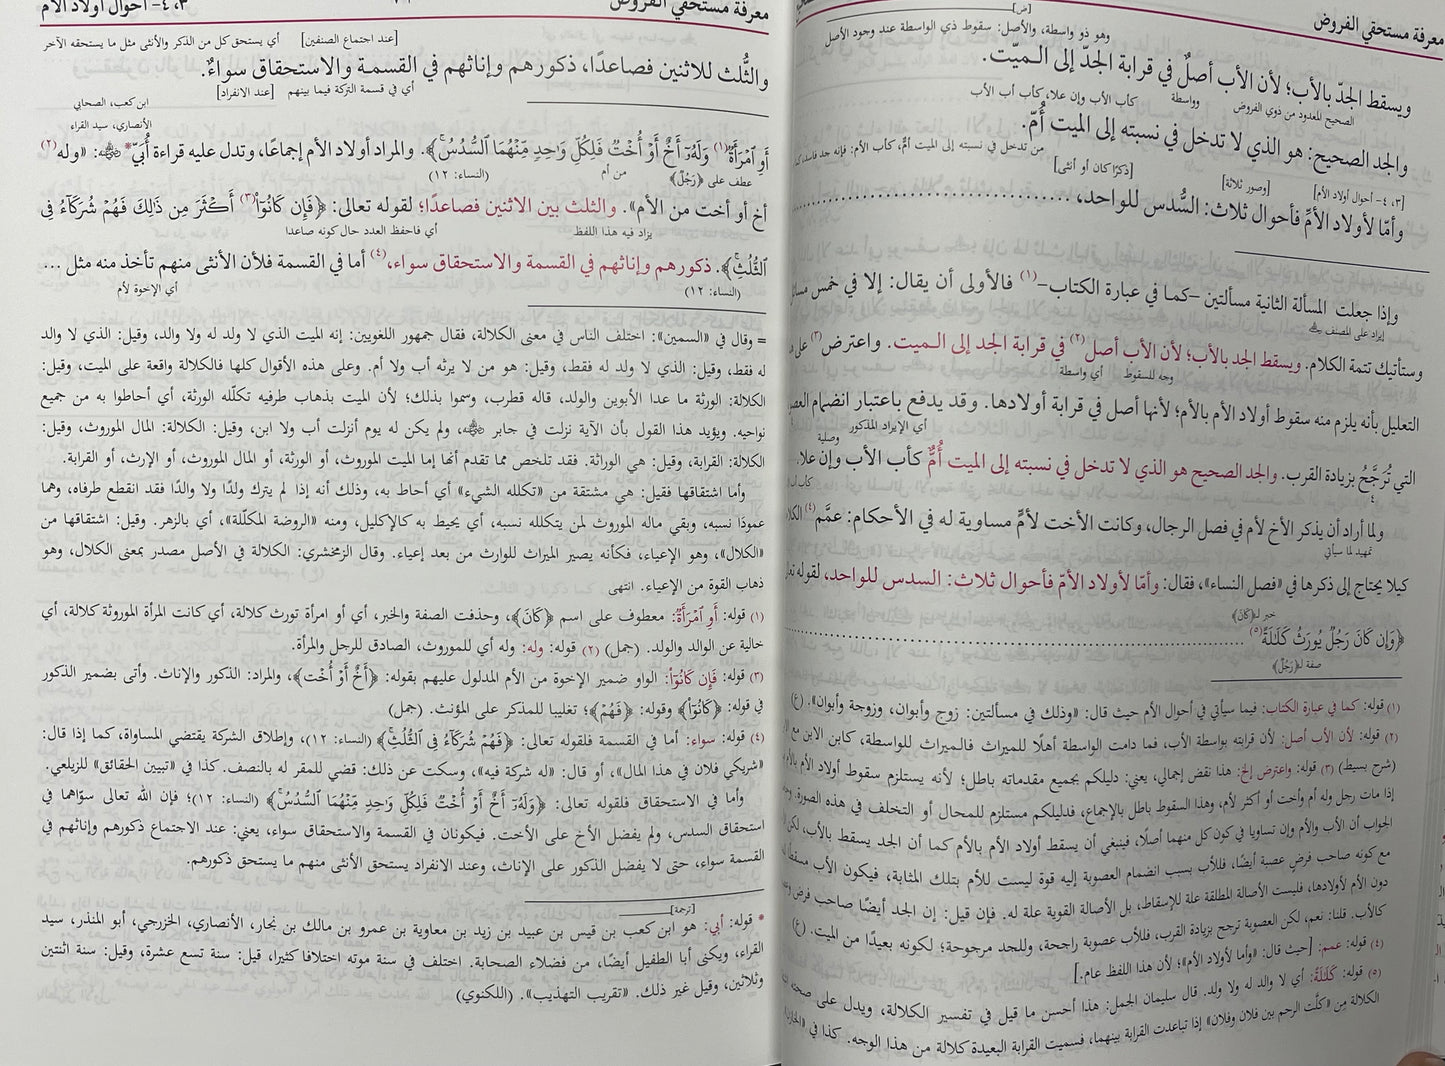 معرفة مستحقي الفروض
[ض]
وهو ذو واسطة، والأصل: سقوط ذي الواسطة عند وجود الأصل
ويسقط الجدّ بالأب؛ لأن الأب أصلٌ في قرابة الجدّ إلى الـميّت.
الصحيح المعدود من ذوي الفروض وواسطة كأب الأب وإن علا، كأب أب الأب
والجد الصحيح: هو الذي لا تدخل في نسبته إلى الميت أُمّ.
من تدخل في نسبته إلى الميت أمٌّ، كأب الأم: فإنه جد فاسد،
[٣، ٤- أحوال أولاد الأم] [وصور ثلاثة] [ذكرًا كان أو أنثى]
وأمّا لأولاد الأمّ فأحوال ثلاث: السُّدس للواحد،
وإذا جعلت المسألة الثانية مسألتين -كما في عبارة الكتاب-(١) فالأولى أن يقال: إلا في خمس
إيراد على المصنف
وستأتيك تتمة الكلام. ويسقط الجد بالأب؛ لأن الأب أصل(٢) في قرابة الجد إلى الـميت. واعترض(٣)
وجه للسقوط أي واسطة
التعليل بأنه يلزم منه سقوط أولاد الأم بالأم؛ لأنها أصل في قرابة أولادها. وقد يدفع باعتبار انضمام
أي الإيراد المذكور
التي تُرَجَّحُ بزيادة القرب. والجد الصحيح هو الذي لا تدخل في نسبته إلى الميت أُمٌّ كأب الأب وإن علا.
وصلية
ولما أراد أن يذكر الأخ لأم في فصل الرجال، وكانت الأخت لأمٍّ مساوية له في الأحكام: عمَّم(٤)
تمهيد لما سيأتي
كيلا يحتاج إلى ذكرها في «فصل النساء»، فقال: وأمّا لأولاد الأمّ فأحوال ثلاث: السدس للواحد، لقوله
خبر لـ﴿كَانَ﴾
﴿وَإِن كَانَ رَجُلٌ يُورَثُ كَلَـٰلَةً(٥)
صفة لـ﴿رَجُلٌ﴾
(١) قوله: كما في عبارة الكتاب: فيما سيأتي في أحوال الأم حيث قال: «وذلك في مسألتين: زوج وأبوان، وزوجة وأبوان». (ع)
(٢) قوله: لأن الأب أصل: لأن قرابته بواسطة الأب، فما دامت الواسطة أهلًا للميراث فالميراث للواسطة، كابن الابن مع
(شرح بسيط) (٣) قوله: واعترض إلخ: هذا نقض إجمالي، يعني: دليلكم بجميع مقدماته باطل؛ لأنه يستلزم سقوط أولاد الأم
إذا مات رجل وله أم وأخت أو أكثر لأم، وهذا السقوط باطل بالإجماع، فدليلكم مستلزم للمحال أو التخلف في هذه الصورة.
الجواب أن الأب والأم وإن تساويا في كون كل منهما أصلًا، فينبغي أن يسقط أولاد الأم بالأم كما أن الجد يسقط بالأب،
مع كونه صاحب فرضٍ عصبة أيضًا، فللأب بسبب انضمام العصوبة إليه قوة ليست للأم بتلك المثابة، فيكون الأب
دون الأم لأولادها، فليست الأصالة المطلقة علة للإسقاط، بل الأصالة القوية علة له. فإن قيل: إن الجد أيضًا صاحب فرض
كالأب. قلنا: نعم، لكن العصوبة ترجح بزيادة القرب، فللأب عصوبة راجحة، وللجد مرجوحة؛ لكونه بعيدًا من الميت. (ع)
(٤) قوله: عمم: [حيث قال: «وأما لأولاد الأم»؛ لأن هذا اللفظ عام.]
(٥) قوله: كَلَـٰلَةً: أي لا والد له ولا ولد. قال سليمان الجمل: هذا أحسن ما قيل في تفسير الكلالة، ويدل على صحته
الكلالة مِن «كلّت الرحم بين فلان وفلان» إذا تباعدت القرابة بينهما، فسميت القرابة البعيدة كلالة من هذا الوجه. كذا في
معرفة مستحقي الفروض
٣، ٤- أحوال أولاد الأم
[عند اجتماع الصنفين] أي يستحق كل من الذكر والأنثى مثل ما يستحقه الآخر
والثُّلث للاثنين فصاعدًا، ذكورهم وإناثهم في القسمة والاستحقاق سواءٌ.
أي في قسمة التركة فيما بينهم [عند الانفراد]
ابن كعب، الصحابي
الأنصاري، سيد القراء
أَوِ ٱمْرَأَةٌ(١) وَلَهُۥٓ أَخٌ أَوْ أُخْتٌ فَلِكُلِّ وَٰحِدٍ مِّنْهُمَا ٱلسُّدُسُ﴾. والمراد أولاد الأم إجماعًا، وتدل عليه قراءة أُبَيّ* ﷺ: «وله(٢)
عطف على ﴿رَجُلٌ﴾ من أم (النساء: ١٢)
أخ أو أخت من الأم». والثلث بين الاثنين فصاعدًا؛ لقوله تعالى: ﴿فَإِن كَانُوٓا۟(٣) أَكْثَرَ مِن ذَٰلِكَ فَهُمْ شُرَكَآءُ فِى
يزاد فيه هذا اللفظ أي فاحفظ العدد حال كونه صاعدا
ٱلثُّلُثِ﴾. ذكورهم وإناثهم في القسمة والاستحقاق سواء،(٤) أما في القسمة فلأن الأنثى منهم تأخذ منه مثل ...
(النساء: ١٢) أي الإخوة لأم
= وقال في «السمين»: اختلف الناس في معنى الكلالة، فقال جمهور اللغويين: إنه الميت الذي لا ولد له ولا والد، وقيل: الذي لا والد
له فقط، وقيل: الذي لا ولد له فقط، وقيل: هو من لا يرثه أب ولا أم. وعلى هذه الأقوال كلها فالكلالة واقعة على الميت، وقيل:
الكلالة: الورثة ما عدا الأبوين والولد، قاله قطرب، وسموا بذلك؛ لأن الميت بذهاب طرفيه تكلّله الورثة، أي أحاطوا به من جميع
نواحيه. ويؤيد هذا القول بأن الآية نزلت في جابر، ولم يكن له يوم أنزلت أب ولا ابن، وقيل: الكلالة: المال الموروث، وقيل:
الكلالة: القرابة، وقيل: هي الوراثة. فقد تلخص مما تقدم أنها إما الميت الموروث، أو الورثة، أو المال الموروث، أو الإرث، أو القرابة.
وأما اشتقاقها فقيل: هي مشتقة من «تكلله الشيء» أي أحاط به، وذلك أنه إذا لم يترك ولدًا ولا والدًا فقد انقطع طرفاه، وهما
عمودَا نسبه، وبقي ماله الموروث لمن يتكلله نسبه، أي يحيط به كالإكليل، ومنه «الروضة المكلّلة»، أي بالزهر. وقيل: اشتقاقها من
«الكلال»، وهو الإعياء، فكأنه يصير الميراث للوارث من بعد إعياء. وقال الزمخشري: الكلالة في الأصل مصدر بمعنى الكلال، وهو
ذهاب القوة من الإعياء. انتهى
(١) قوله: أَوِ ٱمْرَأَةٌ: معطوف على اسم ﴿كَانَ﴾، وحذفت الصفة والخبر، أي أو امرأة تورث كلالة، أي كانت المرأة الموروثة كلالة، أي
خالية عن الوالد والولد. (جمل) (٢) قوله: وله: وله أي للموروث، الصادق للرجل والمرأة.
(٣) قوله: فَإِن كَانُوٓا۟: الواو ضمير الإخوة من الأم المدلول عليهم بقوله: ﴿أَخٌ أَوْ أُخْتٌ﴾، والمراد: الذكور والإناث. وأتى بضمير الذكور
في قوله: ﴿كَانُوٓا۟﴾ وقوله: ﴿فَهُمْ﴾؛ تغليبا للمذكر على المؤنث. (جمل)
(٤) قوله: سواء: أما في القسمة فلقوله تعالى: ﴿فَهُمْ شُرَكَآءُ فِى ٱلثُّلُثِ﴾ (النساء: ١٢)، وإطلاق الشركة يقتضي المساواة، كما إذا قال:
«شريكي فلان في هذا المال»، أو قال: «له شركة فيه»، وسكت عن ذلك: قضي للمقر له بالنصف. كذا في «تبيين الحقائق» للزيلعي.
وأما في الاستحقاق فلقوله تعالى: ﴿وَلَهُۥٓ أَخٌ أَوْ أُخْتٌ فَلِكُلِّ وَٰحِدٍ مِّنْهُمَا ٱلسُّدُسُ﴾ (النساء: ١٢)؛ فإن الله تعالى سوّاهما في
استحقاق السدس، ولم يفضل الأخ على الأخت. فيكونان في القسمة والاستحقاق سواء، يعني: عند الاجتماع ذكورهم وإناثهم في
القسمة سواء، حتى لا يفضل الذكور على الإناث، وعند الانفراد يستحق الأنثى منهم ما يستحق ذكورهم.
[ترجمة]
* قوله: أبي: هو ابن كعب بن قيس بن عبيد بن زيد بن معاوية بن عمرو بن مالك بن نجار، الأنصاري، الخزرجي، أبو المنذر، سيد
القراء، ويكنى أبا الطفيل أيضًا، من فضلاء الصحابة. اختلف في سنة موته اختلافا كثيرا، قيل: سنة تسع عشرة، وقيل: سنة اثنتين
وثلاثين، وقيل غير ذلك. «تقريب التهذيب». (اللكنوي)